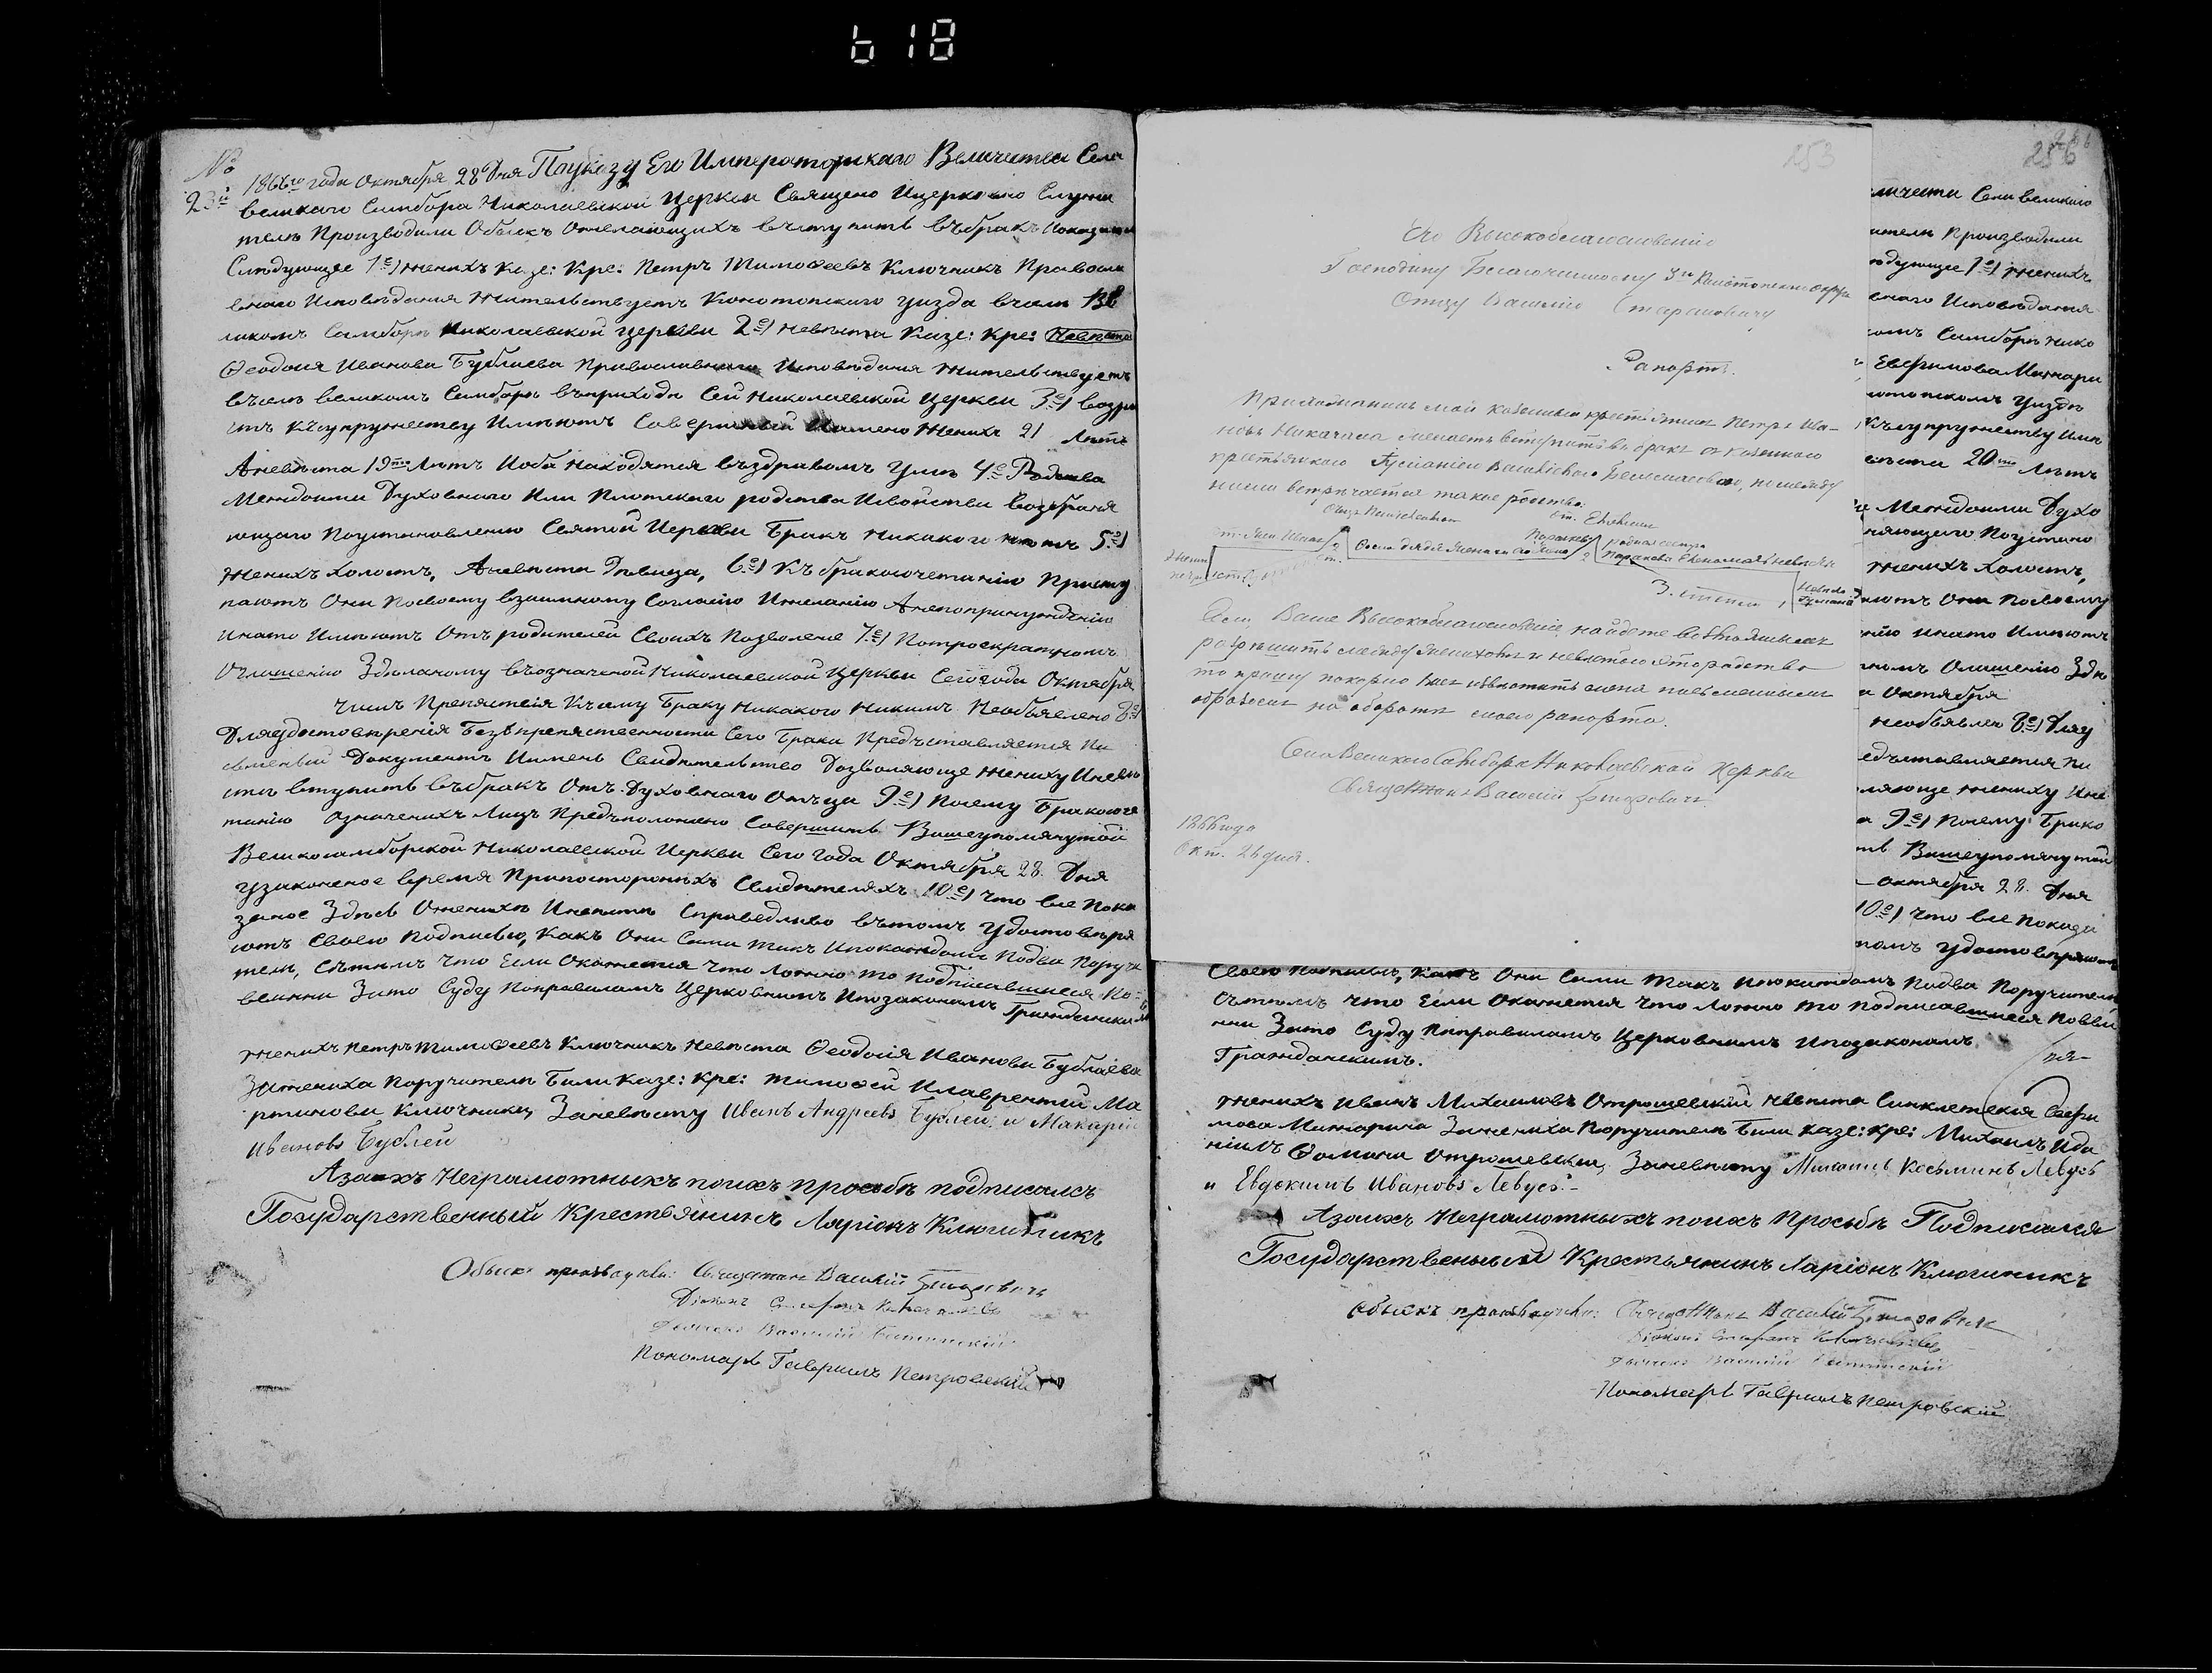 618
№
23й
1866го года Октября 28 Дня По Указу Его Императорскаго Величества Села
великаго Самбора Николаевской Церкви Священо Ицерковно Служи
тели Производили Обыскъ Ожелающихъ вступить въбракъ Показали
Следующее 1е) женихъ Казе: Кре: Петръ Тимофеевъ Ключникъ Правосла
внаго Исповѣдания жительствуетъ Конотопскаго уизда вселѣ Ве
ликомъ Самборѣ Николаевской церкви 2е) невѣста Казе: Кре:
Феодосия Иванова Бублиева Православнаго Исповѣдания жительствуетъ
вселѣ великомъ Самборѣ въприходѣ Сей Николаевской Церкви 3е) возра
стъ Ксупружеству Имѣютъ Совершеный Имено Женихъ 21 Лѣтъ
Аневѣста 19ть Лѣтъ Иоба находятся въздравомъ Умѣ 4е Родства
Междоими Духовнаго Или Плотскаго родства Исвойства возбраня
ющаго Поустановлению Святой Церкви Бракъ Никакого нѣтъ 5е)
Женихъ холостъ, Аневѣста Дѣвица, 6е) Къ бракосочетанию Присту
паютъ Они Посвоему взаимному Согласию Ижеланию Анепопринуждению
Инато Имѣютъ Отъ родителей Своихъ Позволение 7е) Потроекратномъ
Оглашению Здѣланому въозначеной Николаевской Церкви Сего года Октября
чиселъ Препятствия Ксему Браку Никакого Никимъ Необъявлено 8е)
Для удостовѣрения Безъпрепяственности Сего Брака Предъставляется Пи
сьменый Документъ Именъ Свидѣтельство Дозволяюще жениху Иневѣ
стѣ вступить въбракъ Отъ Духовнаго Отъца 9е) Посему Бракосоче
танию Означенихъ Лицъ Предъположено Совершить Вышеупомянутой
Великосамборской Николаевской Церкви Сего Года Октября 28. Дня
узаконеное время Припостороннхъ Свидѣтеляхъ 10е) Что все Пока
заное Здѣсь Оженихѣ Иневѣстѣ Справедливо вътомъ Удостовѣря
ютъ Своею Подписью, Какъ Они Сами такъ Ипокаждомъ Подва Поручи
тели, Сътѣмъ Что Если Окажется Что Ложно то Подписавшиеся По-
винни Зато Суду Поправиламъ Церковнимъ Ипозаконамъ Гражданским
женихъ Петръ Тимофеевъ Ключникъ Невѣста Феодосия Иванова Бублиева
Зажениха Поручители Били Казе: Кре: Тимофей Илаврентий Ма
ртинови Ключники, Заневѣсту Иванъ Андреевъ Бублей и Макарий
Ивановъ Бублей
Азаихъ Неграмотныхъ поихъ просьбѣ подписалсь
Государственный Крестьянинъ Ларіонъ Ключникъ
Обыскъ производили: Священникъ Василій
Діаконъ Стефанъ
Василій
Пономарь Гавриилъ Петровскій
253
256
Его Высокоблагословенію
Господину Благочинному 3го Конотопскаго округа
Отцу Василию Старановичу
Рапортъ.
Прихожанинъ мой казенный крестьянинъ Петръ Ива-
новъ желаетъ вступить въ бракъ съ казенною
крестьянкою Васильевою, но между
ними встрѣчается такое родство.
Параскева
родная сестра
3. степени
Если Ваше Высокоблагословеніе найдете возможнымъ
разрѣшить между женихомъ и невѣстою это родство
то прошу покорно Васъ извѣстить меня письменнымъ
образомъ на оборотѣ моего рапорта.
Села Великаго Самбора Николаевской Церкви
Священникъ Василій
1866 года
Окт. 26 дня.
личества Села великаго
ители Производили
ледующее 1е) женихъ
внаго Исповѣдания
комъ Самборѣ Нико
Евфимова Мижари
нотопскомъ Уиздѣ
Ксупружеству Имѣ
евѣста 20ть Лѣтъ
Междоими Духо
няющаго Поустано
женихъ холостъ,
аютъ Они Посвоему
нію инато Имѣютъ
номъ Оглашению Здѣ
а Октября
необъявлен 8е) Дляу
едъставляется Пи
ляюще жениху Ине
а 9е) Посему Брако
ть Вышеупомянутой
Октября 28. Дня
10е) Что все Показа
томъ удостовѣряютъ
Своею Подписью, Какъ Они Сами такъ ипокаждомъ Подва Поручители
Сътѣмъ Что Если Окажется Что Ложно то Подписавшиеся Повви
нни Зато Суду Поправиламъ Церковнимъ Ипозаконамъ
Гражданскимъ.
женихъ Иванъ Михаиловъ Отрошевский невѣста Синклетекия Евфи
мова Мижарича Зажениха Поручители Били казе: Кре: Михаилъ Ида
ніилъ Фомичи Отрошевски, Заневѣсту Косьминъ Левусъ
и Евдокимъ Ивановъ Левусъ.-
Азаихъ Неграмотныхъ поихъ Просьбѣ Подписался
Государственный Крестьянинъ Ларіонъ Ключникъ
Обыскъ производили: Священникъ Василій
Діаконъ Стефанъ
Василій
Пономарь Гавриилъ Петровскій